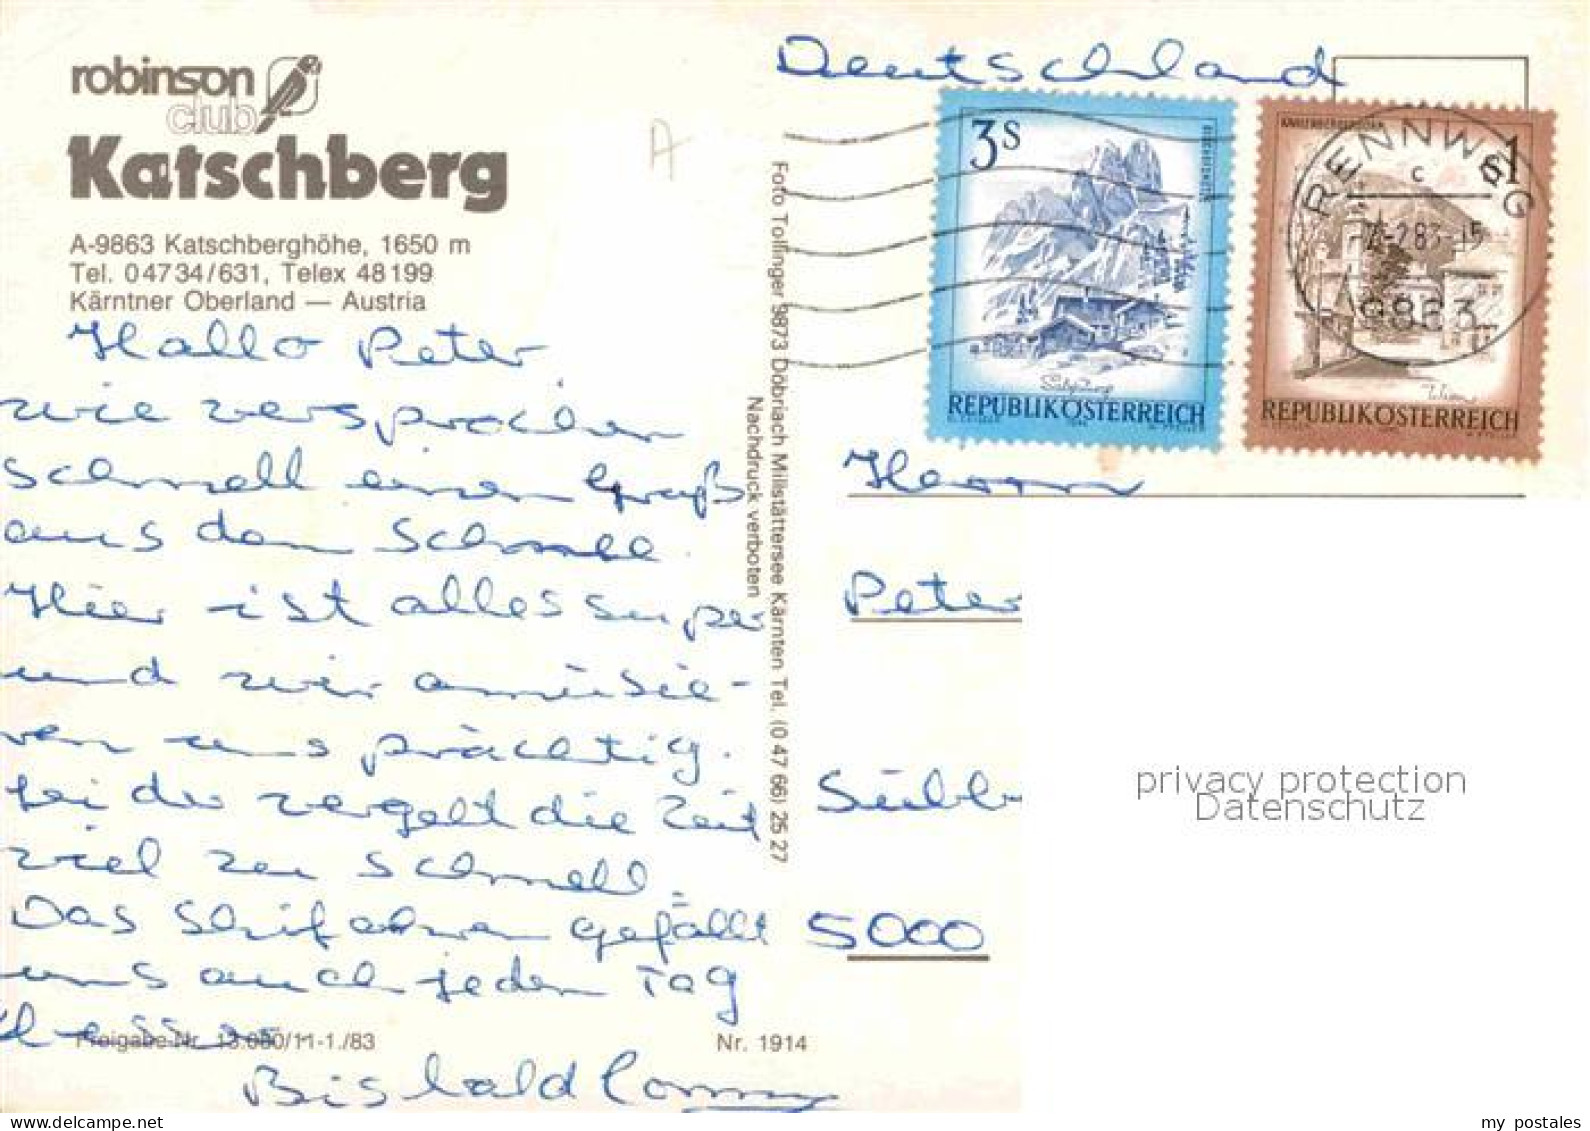 robinson
club
Katschberg
A-9863 Katschberghöhe, 1650 m
Tel. 04734/631, Telex 48199
Kärntner Oberland — Austria
Hallo Peter
wie versprochen
schnell einen Gruß
aus dem Schnee.
Hier ist alles super
und wir amüsie-
ren uns prächtig.
Leider vergeht die Zeit
viel zu schnell.
Das Skifahren gefällt
uns auch jeden Tag
besser.
Freigabe-Nr. 13.080/11-1./83
Nr. 1914
Bis bald
Foto Tollinger 9873 Döbriach Millstättersee Kärnten Tel. (0 47 66) 25 27
Nachdruck verboten
Deutschland
3 S
REPUBLIK ÖSTERREICH
1
REPUBLIK ÖSTERREICH
RENNWEG
c
9863
Herrn
Peter
5000
privacy protection
Datenschutz
my postales